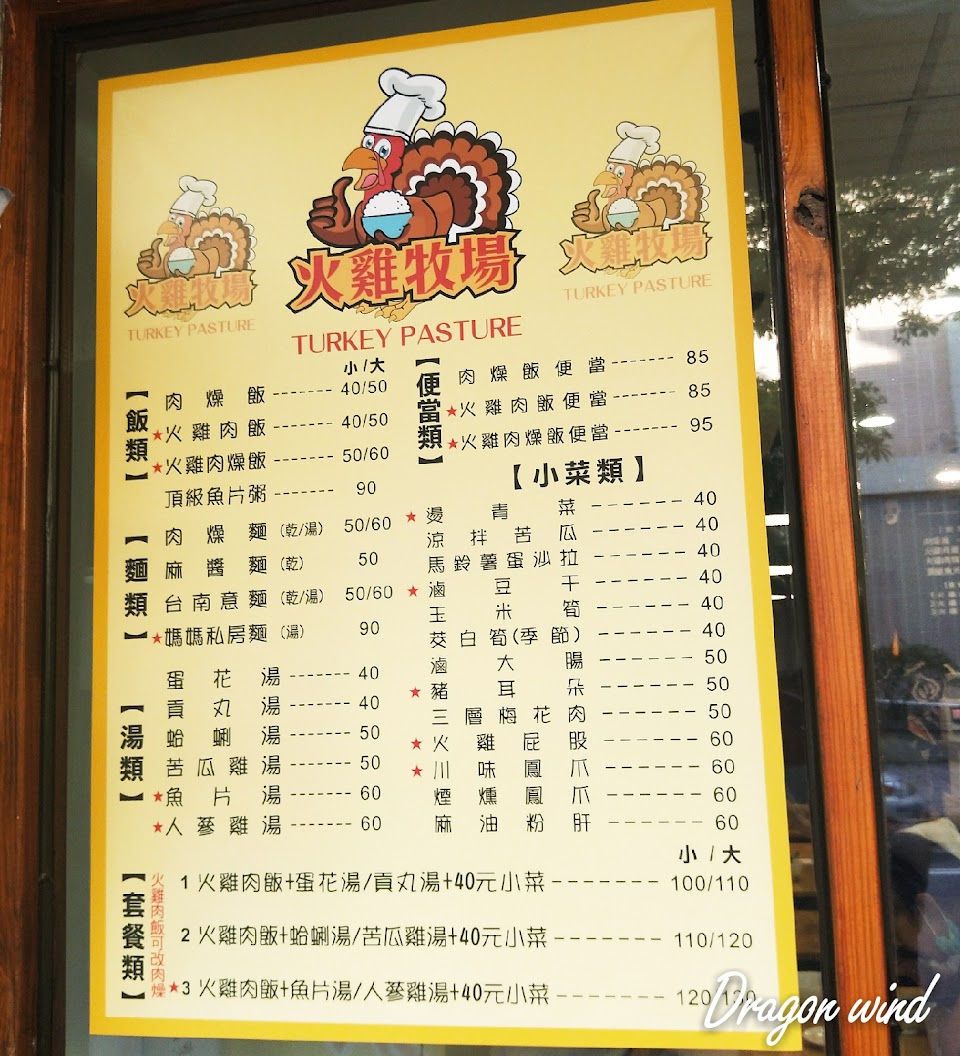 火雞牧場
TURKEY PASTURE
火雞牧場
TURKEY PASTURE
火雞牧場
TURKEY PASTURE
小/大
【飯類】
肉燥飯 ------- 40/50
★火雞肉飯 ------- 40/50
★火雞肉燥飯 ------- 50/60
頂級魚片粥 ------- 90
【麵類】
肉燥麵(乾/湯) 50/60
麻醬麵(乾) 50
台南意麵(乾/湯) 50/60
★媽媽私房麵(湯) 90
【湯類】
蛋花湯 ------- 40
貢丸湯 ------- 40
蛤蜊湯 ------- 50
苦瓜雞湯 ------- 50
★魚片湯 ------- 60
★人蔘雞湯 ------- 60
【便當類】
肉燥飯便當 ------- 85
★火雞肉飯便當 ------- 85
★火雞肉燥飯便當 ------- 95
【小菜類】
★燙青菜 ------ 40
涼拌苦瓜 ------ 40
馬鈴薯蛋沙拉 ------ 40
★滷豆干 ------ 40
玉米筍 ------ 40
茭白筍(季節) ------ 40
滷大腸 ------ 50
★豬耳朵 ------ 50
三層梅花肉 ------ 50
★火雞屁股 ------ 60
★川味鳳爪 ------ 60
煙燻鳳爪 ------ 60
麻油粉肝 ------ 60
小/大
【套餐類】
火雞肉飯可改肉燥
1 火雞肉飯+蛋花湯/貢丸湯+40元小菜 ------- 100/110
2 火雞肉飯+蛤蜊湯/苦瓜雞湯+40元小菜 ------- 110/120
★3 火雞肉飯+魚片湯/人蔘雞湯+40元小菜 ------- 120/130
Dragon wind